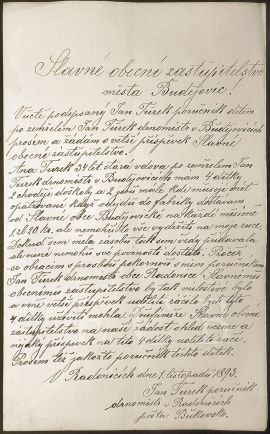 Slavné obecné zastupitelstvo
města Budějovic!
Vůctě podepsaný Jan Turek poručník dětem
po zemřelém Jan Turek drnomistr v Budějovicích
prosím a žádám o větší příspěvek Slavné
obecné zastupitelstvo.
Ana Turek 34 let stará vdova po zemřelém Jan
Turek drnomistr v Budějovicích mám 4 dítky
2 chodějí do školy a 2 ješů malé kde musejí být
opatrované když odejdu do fabriky dostávám
od Slavné obce Budějovické na každé měsíčně
zl 20 kr. ale nemohu to víc vydržeti na moje ruce
Dokud sem měla zásobu tak sem vždy přidávala
ale nyní
se obracím s prosbou
Jan Turek drnomistr obce Radonice Slavnému
obecnému zastupitelstvo by tak milostivé bylo
a mně větší příspěvek udělit ráčilo bych tyto
4 dítky uživit mohla. Troufám že Slavné obecní
zastupitelstvo na naši žádost ohled vezme a
nějaký příspěvek na tito 4 dítky uděliti ráčí.
Prosím též jakožto poručník těchto dítek.
V Radonicích dne 1. listopadu 1893.
Jan Turek poručník
drnomistr v Radonicích
pošta Bukovsko.